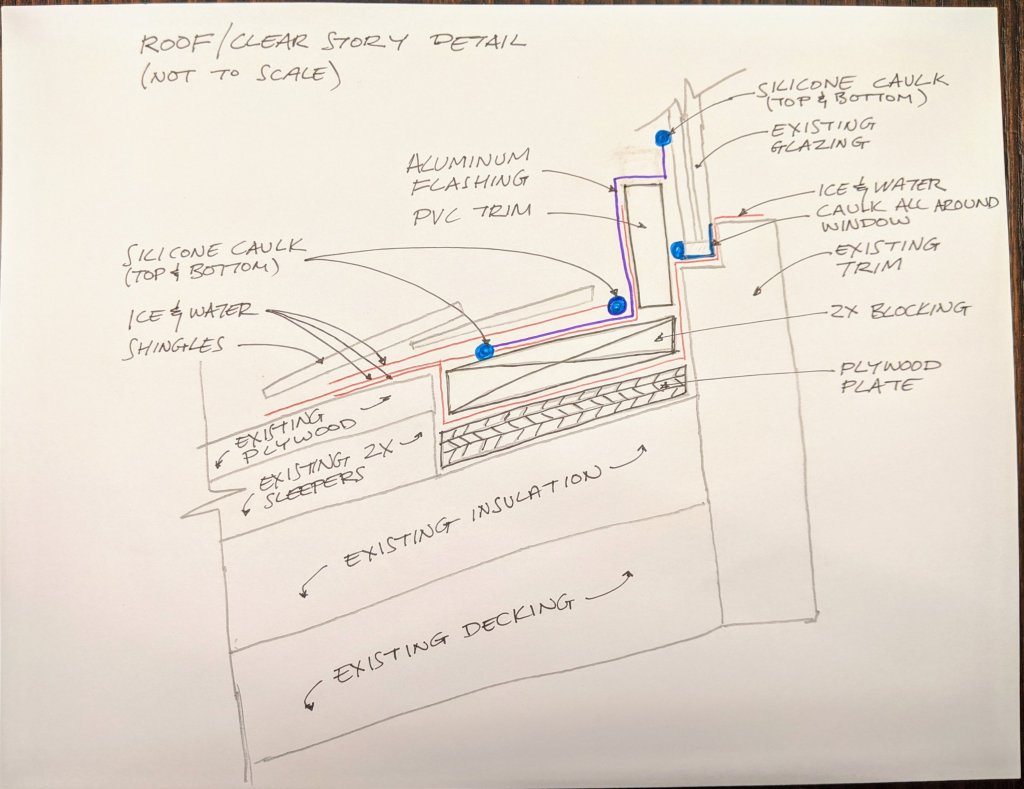 ROOF/CLEAR STORY DETAIL
(NOT TO SCALE)
SILICONE CAULK
(TOP & BOTTOM)
EXISTING
GLAZING
ALUMINUM
FLASHING
PVC TRIM
ICE & WATER
CAULK ALL AROUND
WINDOW
EXISTING
TRIM
SILICONE CAULK
(TOP & BOTTOM)
ICE & WATER
SHINGLES
2X BLOCKING
PLYWOOD
PLATE
EXISTING
PLYWOOD
EXISTING 2X
SLEEPERS
EXISTING INSULATION
EXISTING DECKING